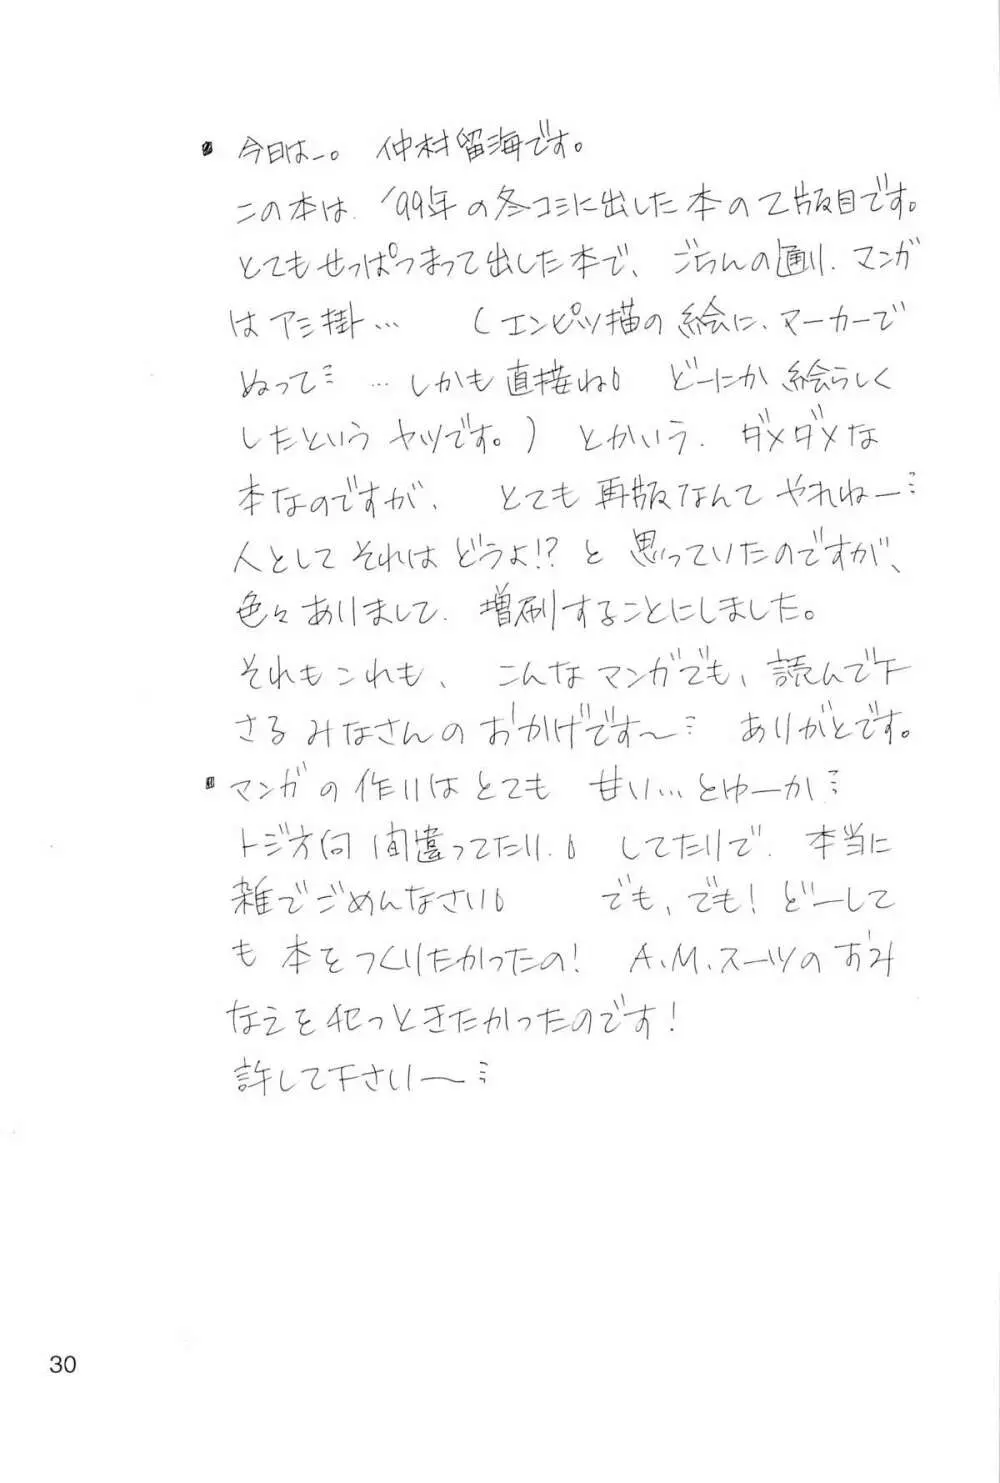 ・今日は―。 仲村留海です。
この本は、'99年の冬コミに出した本の2版目です。
とてもせっぱつまって出した本で、ごらんの通り、マンガ
はアミ掛… (エンピツ描の絵に、マーカーで
ぬって… …しかも直接ね。 どーにか絵らしく
したというヤツです。) とかいう、ダメダメな
本なのですが、 とても再版なんてやれねー…
人としてそれはどうよ!?と思っていたのですが、
色々ありまして、増刷することにしました。
それもこれも、 こんなマンガでも、読んで下
さるみなさんのおかげです〜… ありがとです。
・マンガの作りはとても 甘い…とゆーか…
トジ方向間違ってたり、。してたりで、本当に
雑でごめんなさい。 でも、でも!どーして
も本をつくりたかったの! A.M.スーツのおみ
なえを犯っときたかったのです!
許して下さい〜…
30